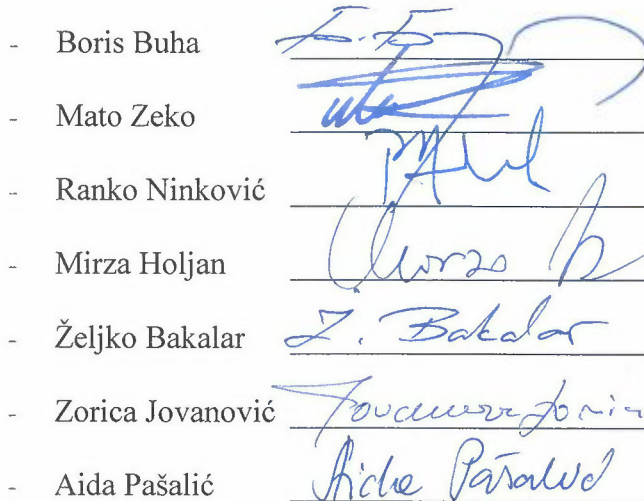 - Boris Buha Б. Б
- Mato Zeko
- Ranko Ninković
- Mirza Holjan
- Željko Bakalar Ž. Bakalar
- Zorica Jovanović
- Aida Pašalić Aida Pašalić